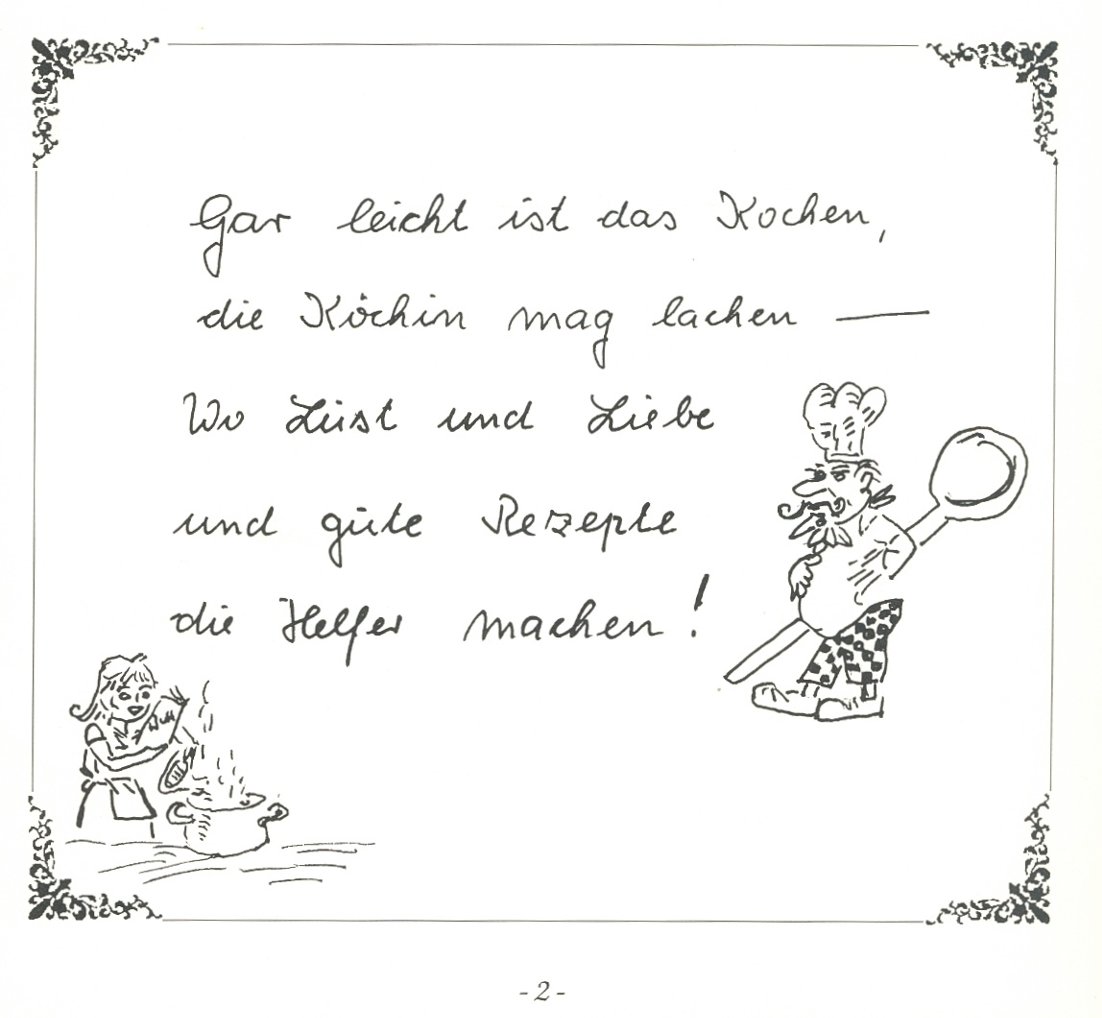 Gar leicht ist das Kochen,
die Köchin mag lachen —
Wo Lust und Liebe
und gute Rezepte
die Helfer machen!
- 2 -